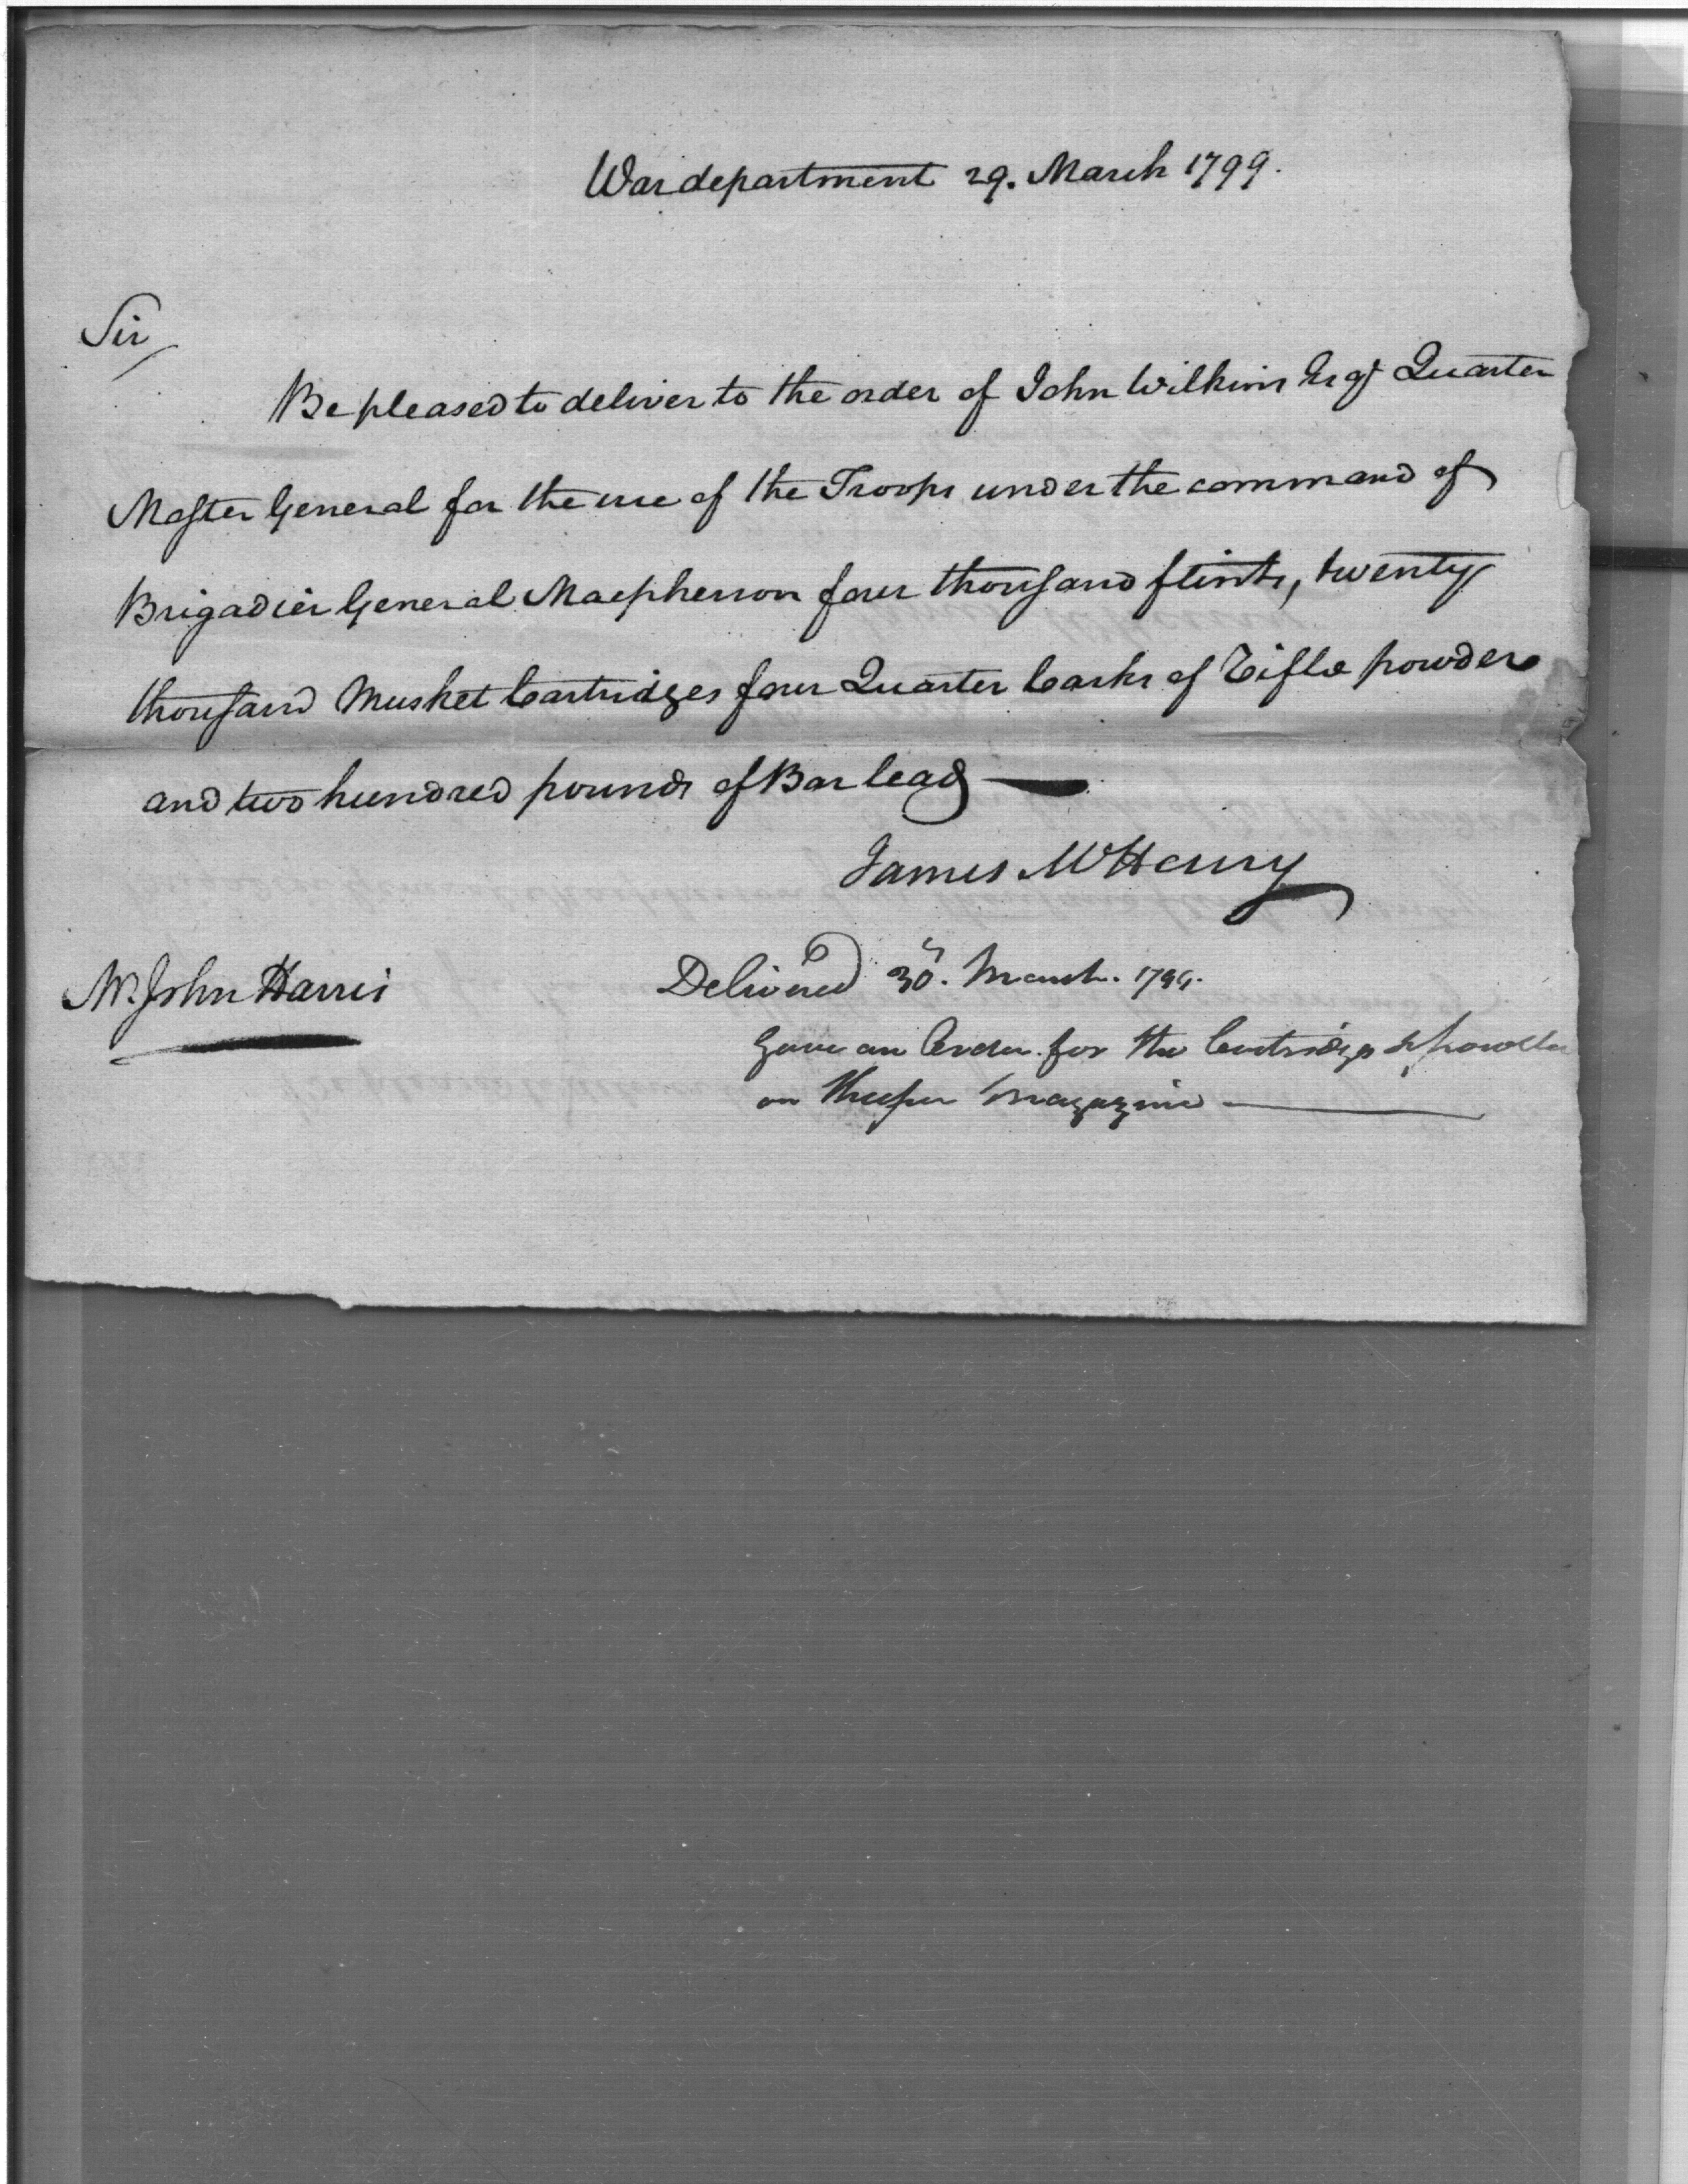 War department 29. March 1799.
Sir
Be pleased to deliver to the order of John Wilkins Esqr Quarter
Master General for the use of the Troops under the command of
Brigadier General Macpherson four thousand flints, twenty
thousand Musket Cartridges four Quarter Casks of Rifle powder
and two hundred pounds of Bar lead
James McHenry
Mr. John Harris
Delivered 30. March. 1799.
Gave an Order for the Cartridges & powder
on Keeper Magazine